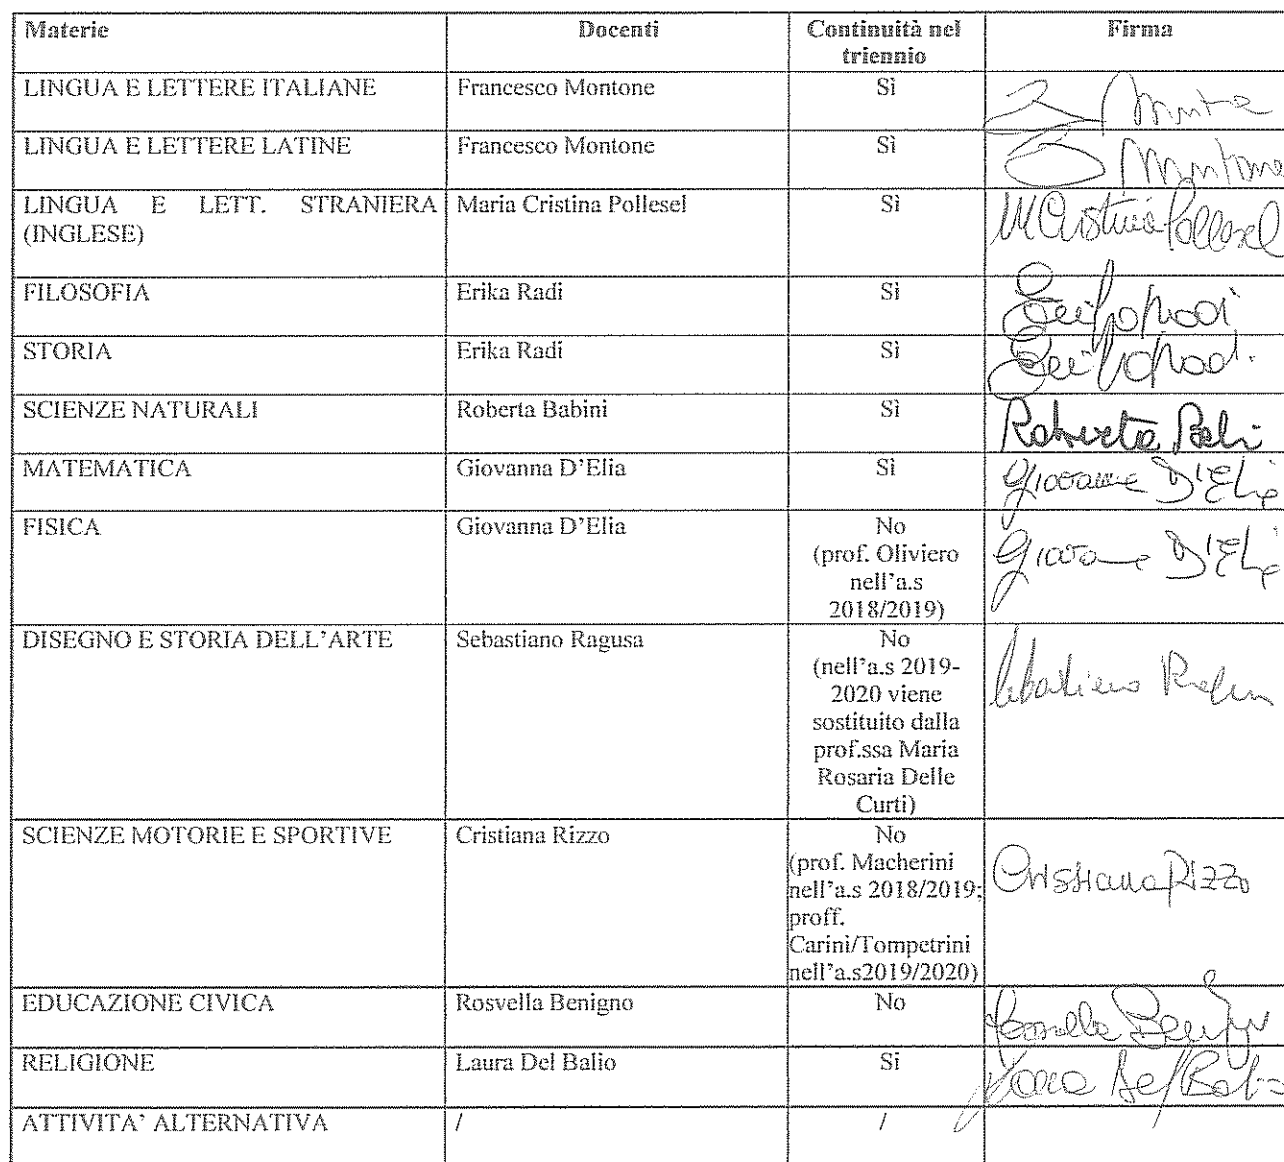 Materie Docenti Continuità nel triennio Firma
LINGUA E LETTERE ITALIANE Francesco Montone Sì
LINGUA E LETTERE LATINE Francesco Montone Sì Montone
LINGUA E LETT. STRANIERA Maria Cristina Pollesel Sì M Cristina Pollesel
(INGLESE)
FILOSOFIA Erika Radi Sì Erika Radi
STORIA Erika Radi Sì Erika Radi
SCIENZE NATURALI Roberta Babini Sì Roberta
MATEMATICA Giovanna D'Elia Sì Giovanna D'Elia
FISICA Giovanna D'Elia No Giovanna D'Elia
(prof. Oliviero
nell'a.s
2018/2019)
DISEGNO E STORIA DELL'ARTE Sebastiano Ragusa No Sebastiano
(nell'a.s 2019-
2020 viene
sostituito dalla
prof.ssa Maria
Rosaria Delle
Curti)
SCIENZE MOTORIE E SPORTIVE Cristiana Rizzo No Cristiana Rizzo
(prof. Macherini
nell'a.s 2018/2019;
proff.
Carini/Tompetrini
nell'a.s2019/2020)
EDUCAZIONE CIVICA Rosvella Benigno No
RELIGIONE Laura Del Balio Sì Laura Del Balio
ATTIVITA' ALTERNATIVA / /